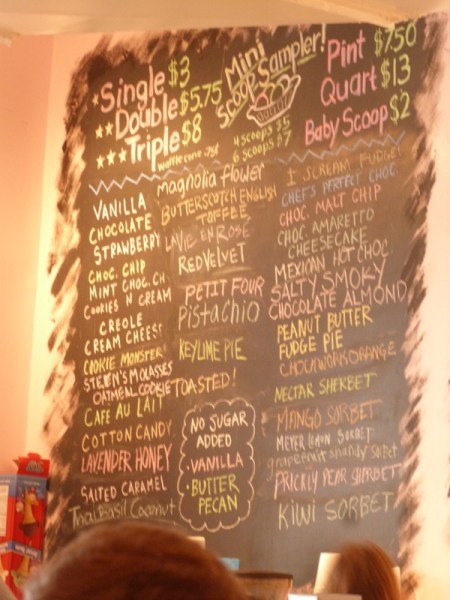 *Single $3
**Double $5.75
***Triple $8
Waffle cone .75¢
Mini
Scoop Sampler!
4 scoops $5
6 scoops $7
Pint $7.50
Quart $13
Baby Scoop $2
VANILLA
CHOCOLATE
STRAWBERRY
CHOC. CHIP
MINT CHOC. CH
COOKIES N CREAM
CREOLE
CREAM CHEESE
COOKIE MONSTER
STEEN'S MOLASSES
OATMEAL COOKIE
CAFE AU LAIT
COTTON CANDY
LAVENDER HONEY
SALTED CARAMEL
Thai Basil Coconut
magnolia flower
BUTTERSCOTCH ENGLISH
TOFFEE
LA VIE EN ROSE
RED VELVET
PETIT FOUR
Pistachio
KEYLIME PIE
TOASTED!
NO SUGAR
ADDED
• VANILLA
• BUTTER
PECAN
I SCREAM FUDGE!
CHEF'S PERFECT CHOC
CHOC. MALT CHIP
CHOC AMARETTO
CHEESECAKE
MEXICAN HOT CHOC
SALTY SMOKY
CHOCOLATE ALMOND
PEANUT BUTTER
FUDGE PIE
CHOCKWORK ORANGE
NECTAR SHERBET
MANGO SORBET
MEYER LEMON SORBET
grapefruit shandy sorbet
PRICKLY PEAR SHERBET
KIWI SORBET